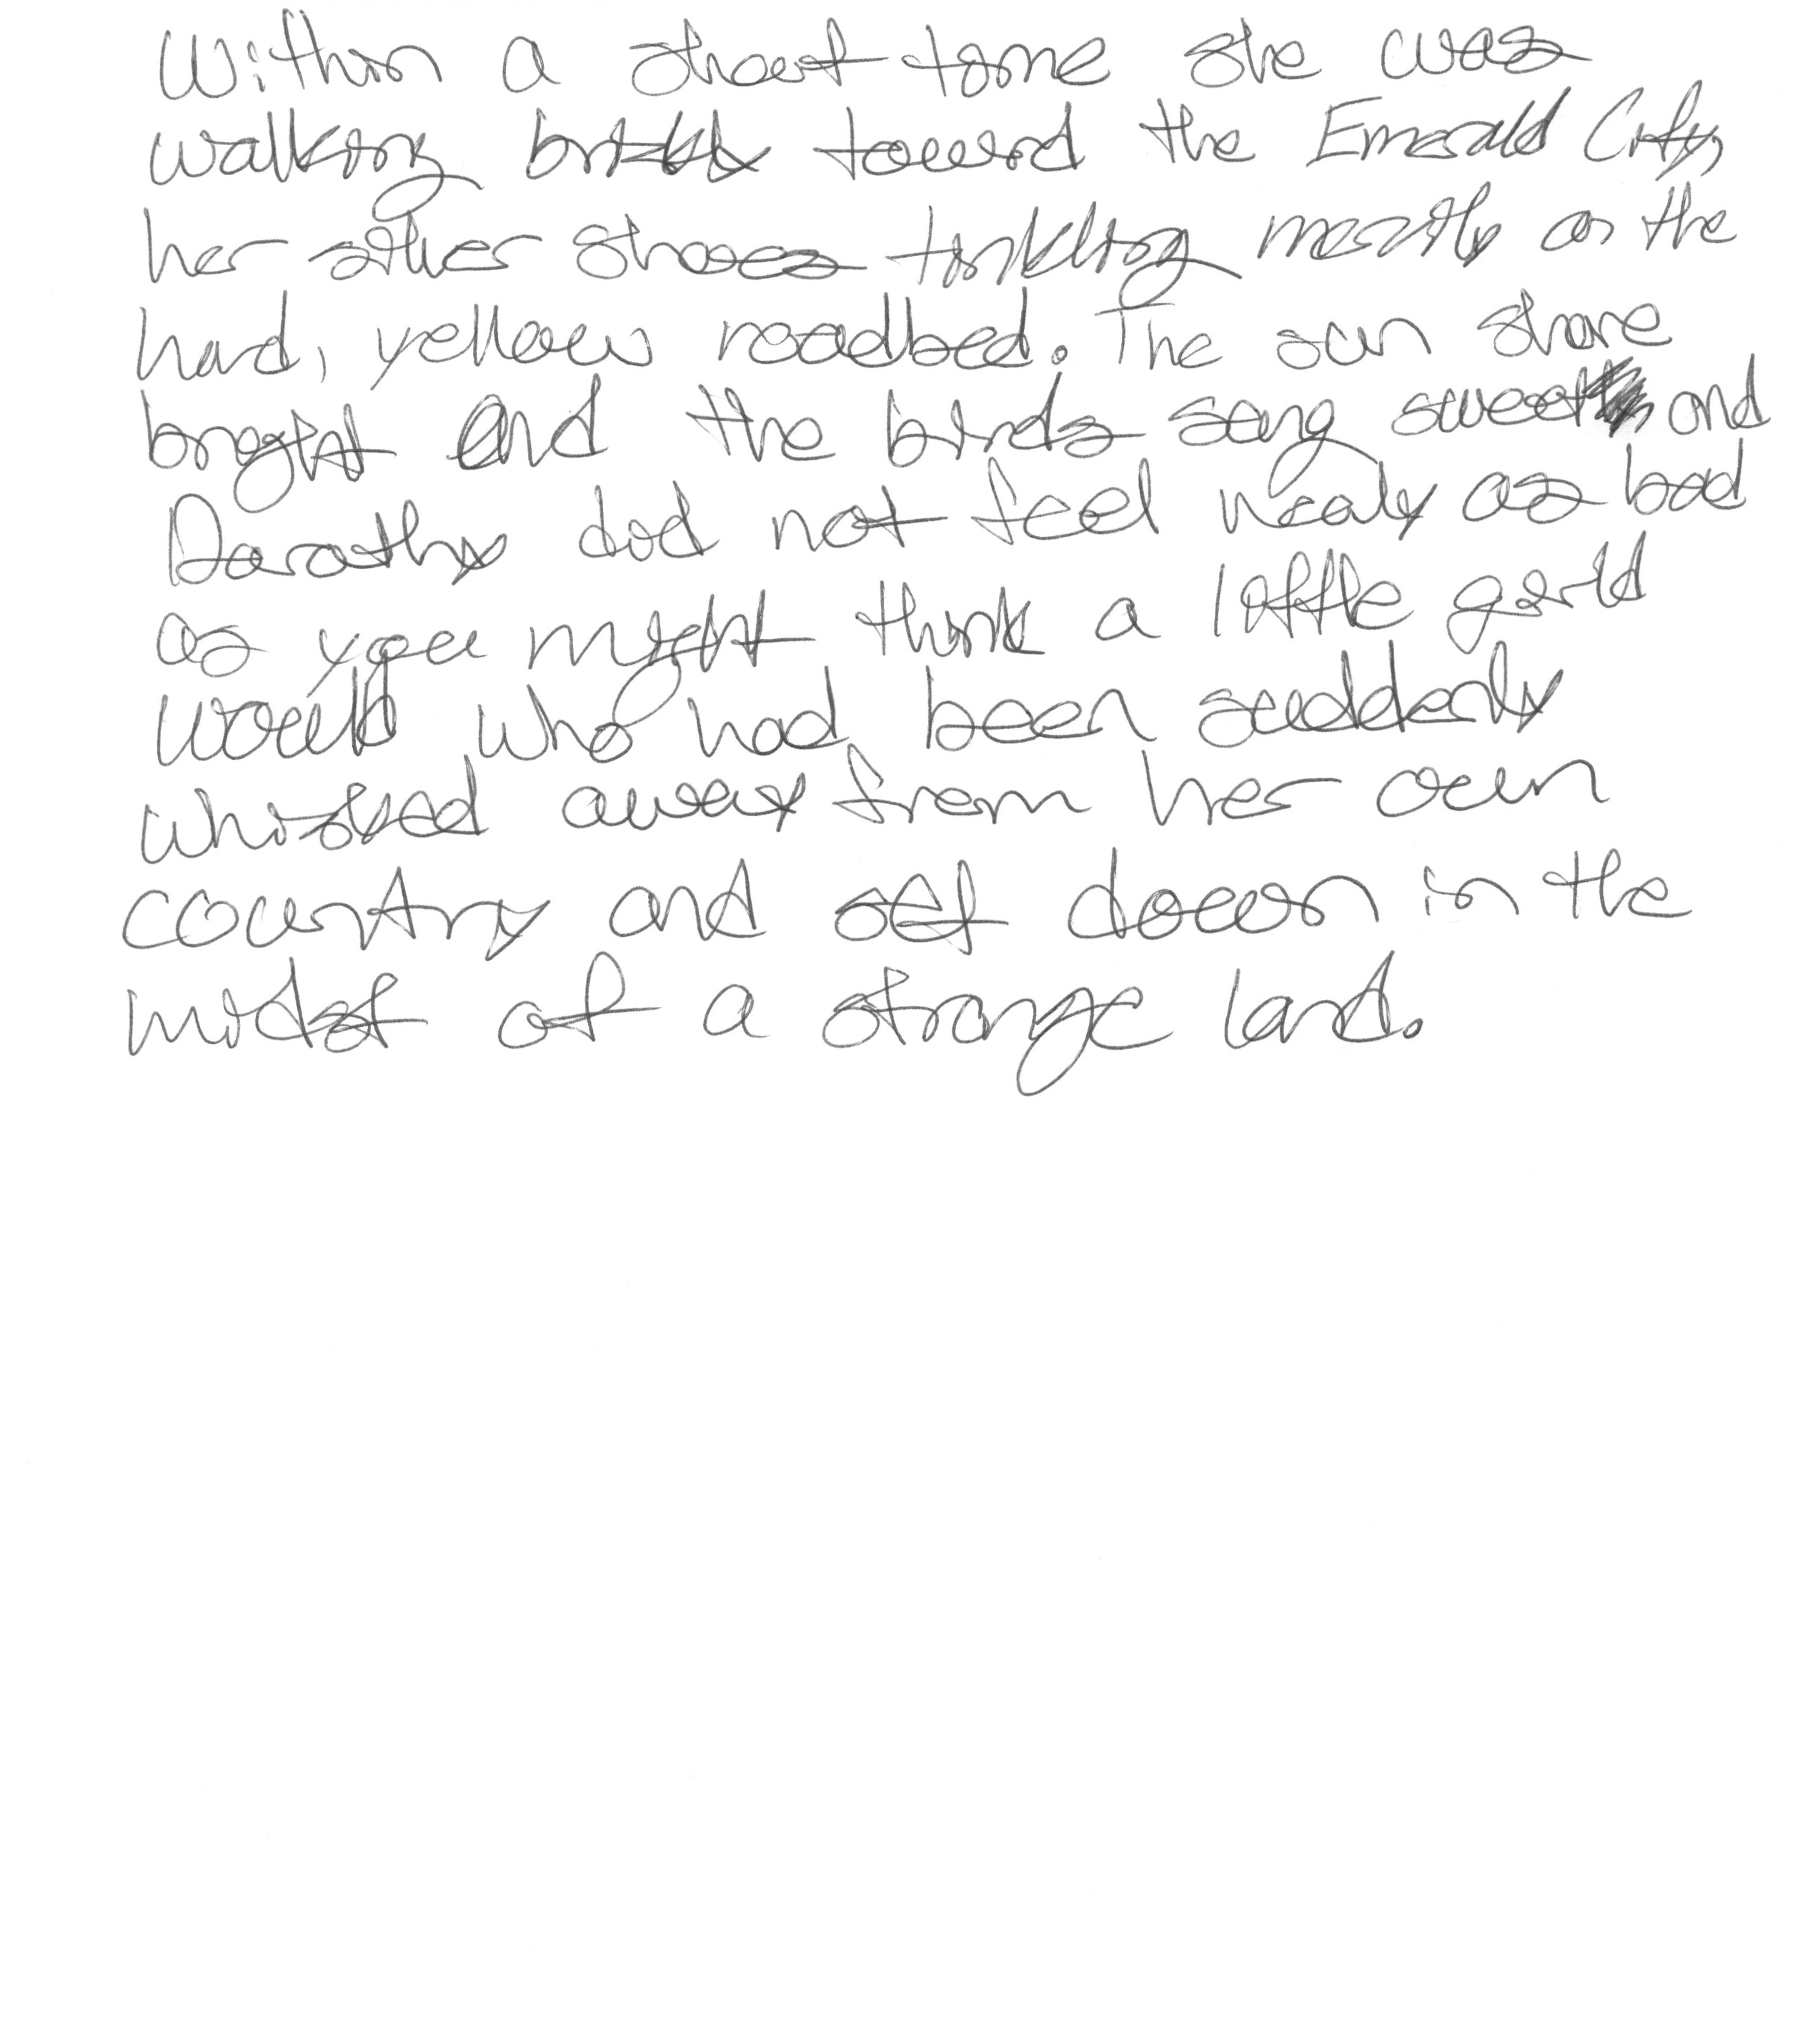 Within a short time she was
walking briskly toward the Emerald City,
her silver shoes tinkling merrily on the
hard, yellow roadbed. The sun shone
bright and the birds sang sweet and
Dorothy did not feel nealy as bad
as you might think a little girld
would who had been suddenly
whisked away from her own
country and set down in the
midst of a strange land.